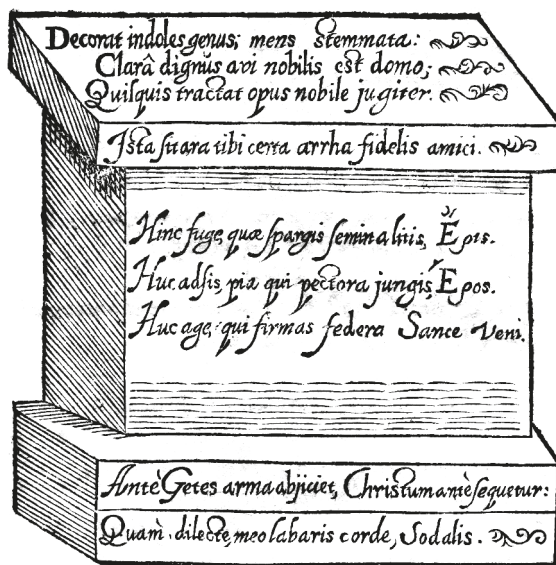 Decorat indoles genus; mens stemmata:
Clarâ dignus avi nobilis est domo;
Quisquis tractat opus nobile jugiter.
Ista fit ara tibi certa arrha fidelis amici.
Hinc fuge, quæ spargis semina litis, Ἔρις.
Huc adsis, pia qui pectora jungis, Ἔρος.
Huc age, qui firmas federa Sance Veni.
Antè Getes arma abjiciet, Christum antè sequetur:
Quàm, dilecte, meo labaris corde, Sodalis.